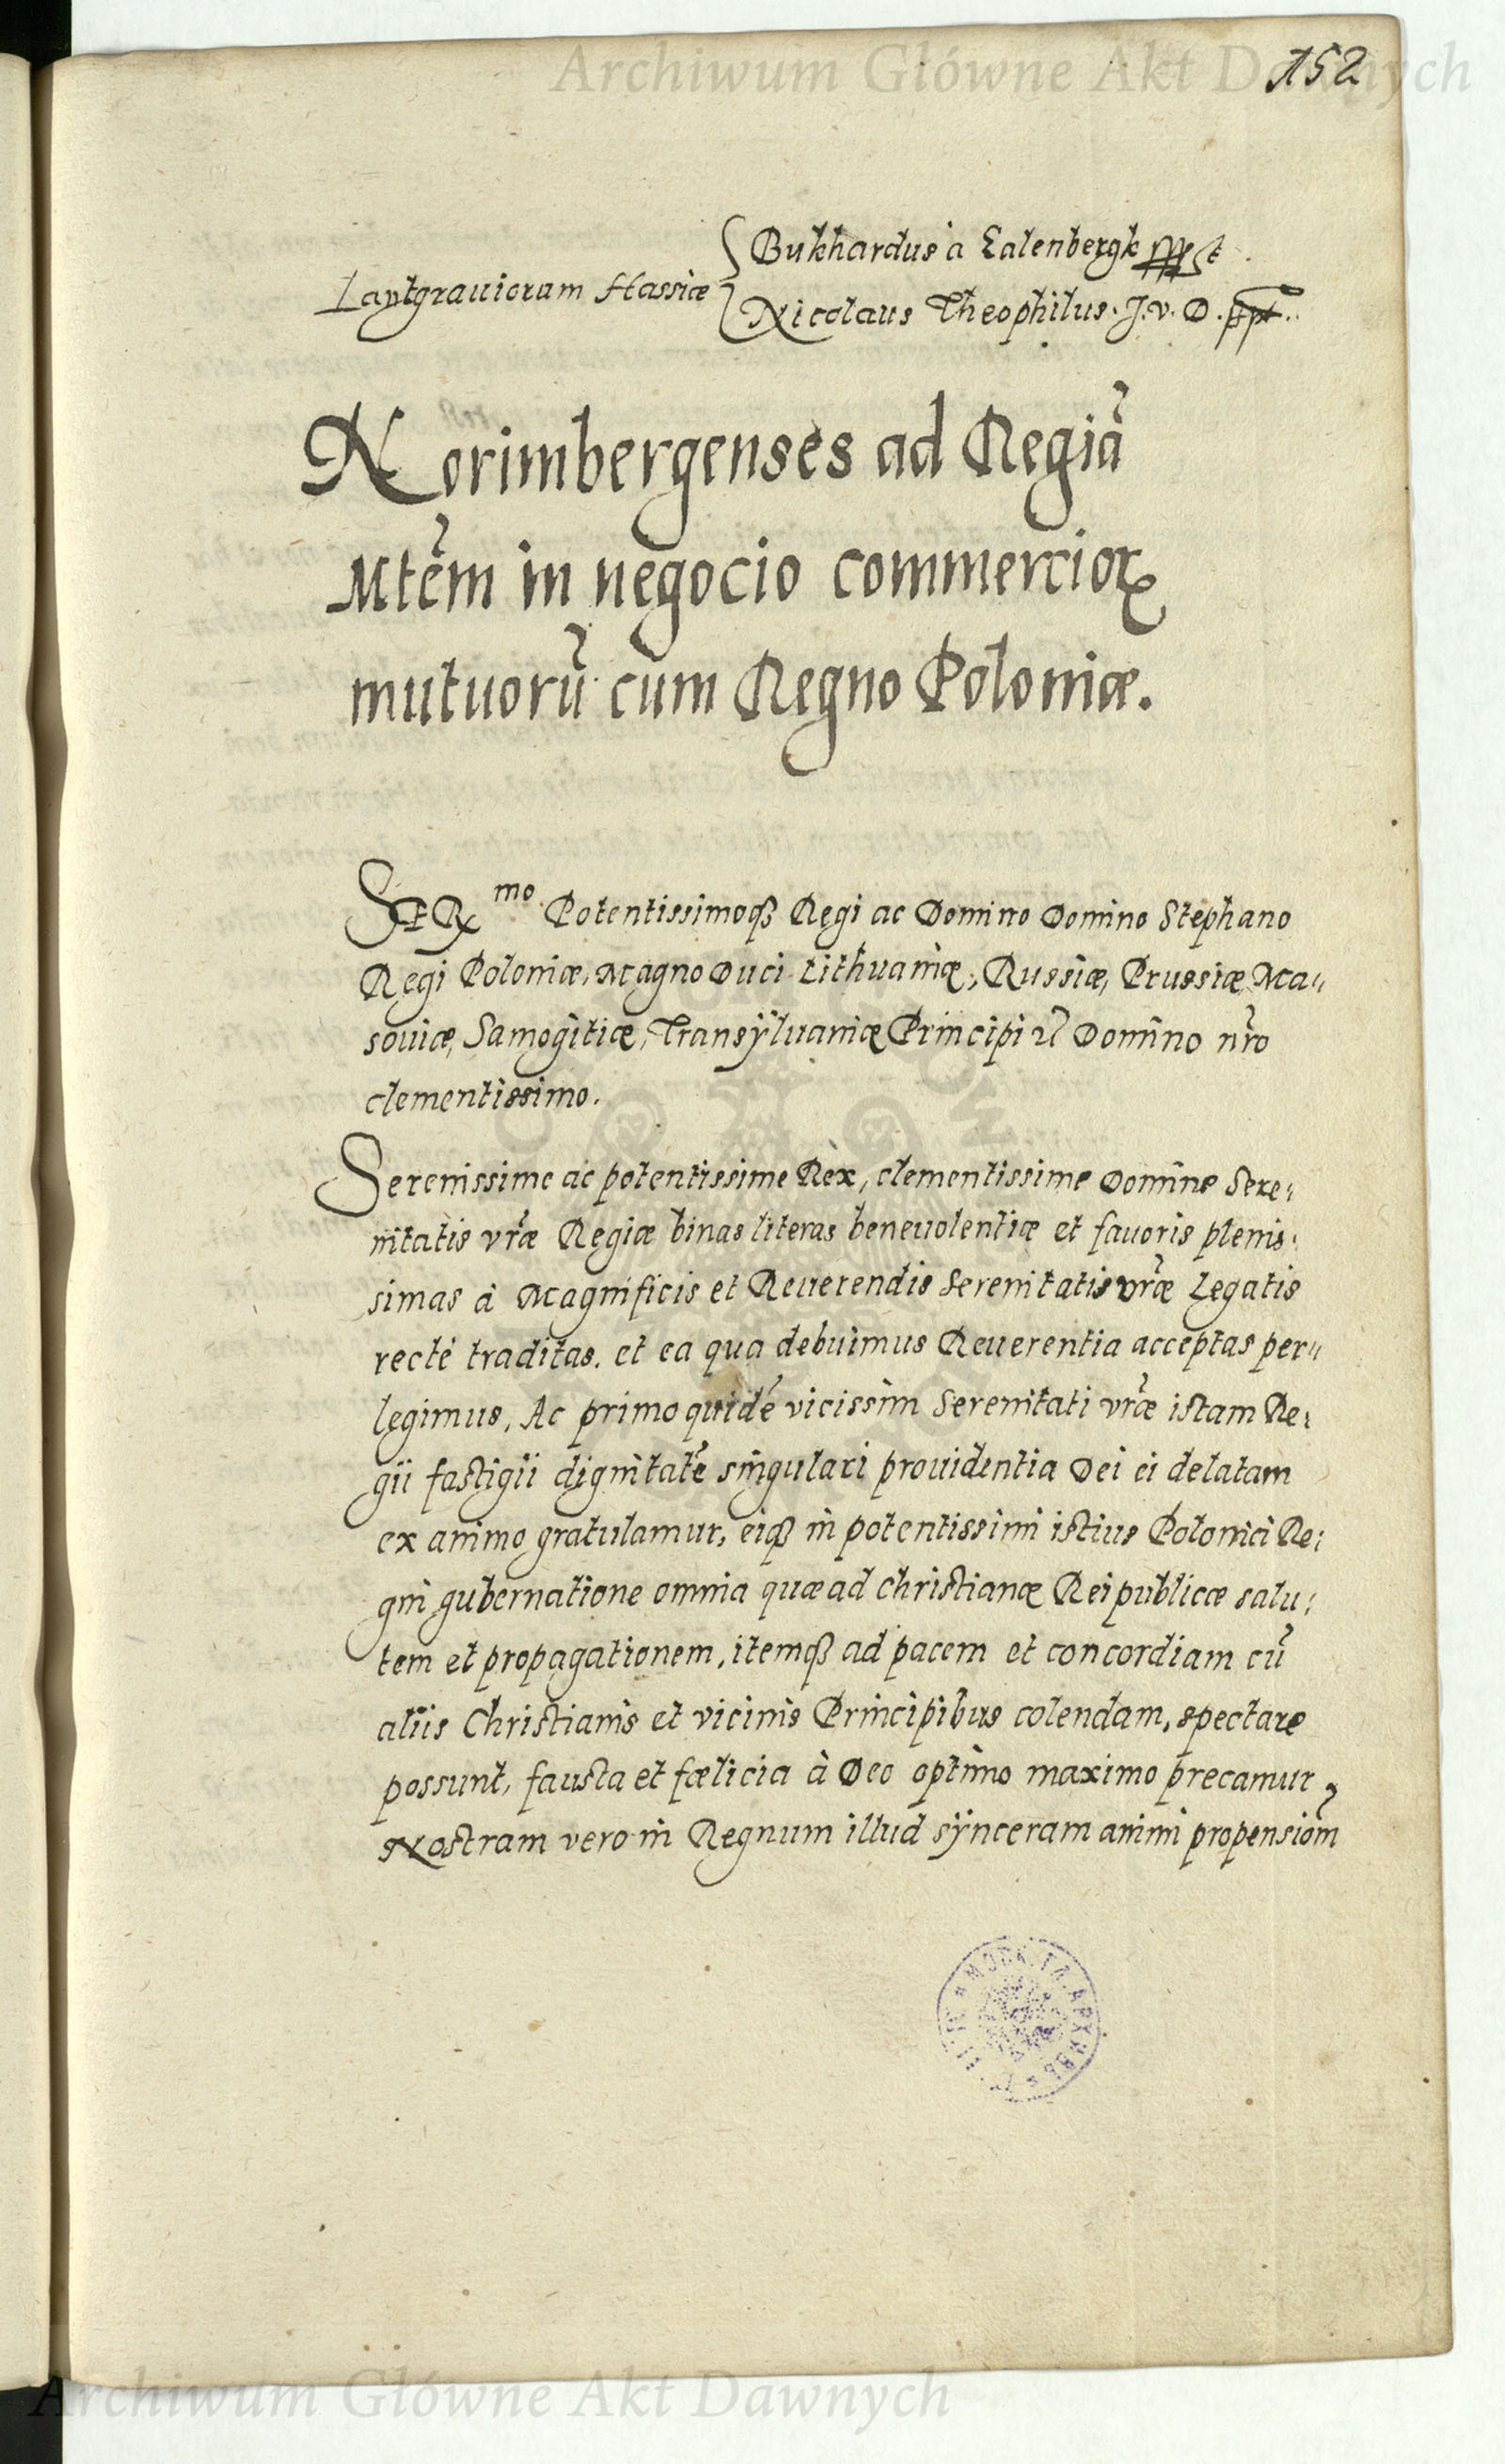 Archiwum Główne Akt Dawnych
152
Bukhardus à Calenbergk
Lantgrauiorum Hassiæ
Nicolaus Theophilus. J. v. D.
Norimbergenses ad Regiā
Mtēm in negocio commercioꝝ
mutuorū cum Regno Poloniæ.
SERmo. Potentissimoqꝫ Regi ac Domino Domino Stephano
Regi Poloniæ, Magno Duci Lithuaniæ, Russiæ, Prussiæ, Ma„
souiæ, Samogitiæ, Transÿluaniæ Principi ꝛc Domino nr̄o
clementissimo.
Serenissime ac potentissime Rex, clementissime Domine Sere:
nitatis vr̄æ Regiæ binas literas beneuolentiæ et fauoris plenis:
simas à Magnificis et Reuerendis Serenitatis vr̄æ Legatis
recté traditas. et ea qua debuimus Reuerentia acceptas per„
legimus, Ac primo quidē vicissim Serenitati vr̄æ istam Re:
gii fastigii dignitatē singulari prouidentia Dei ei delatam
ex animo gratulamur, eiqꝫ in potentissimi istius Polonici Re:
gni gubernatione omnia quæ ad christianæ Reipublicæ salu:
tem et propagationem, itemqꝫ ad pacem et concordiam cū
aliis Christianis et vicinis Principibus colendam, spectare
possunt, fausta et fœlicia à Deo optimo maximo precamur,
Nostram vero in Regnum illud sÿnceram animi propensiōm
Archiwum Główne Akt Dawnych